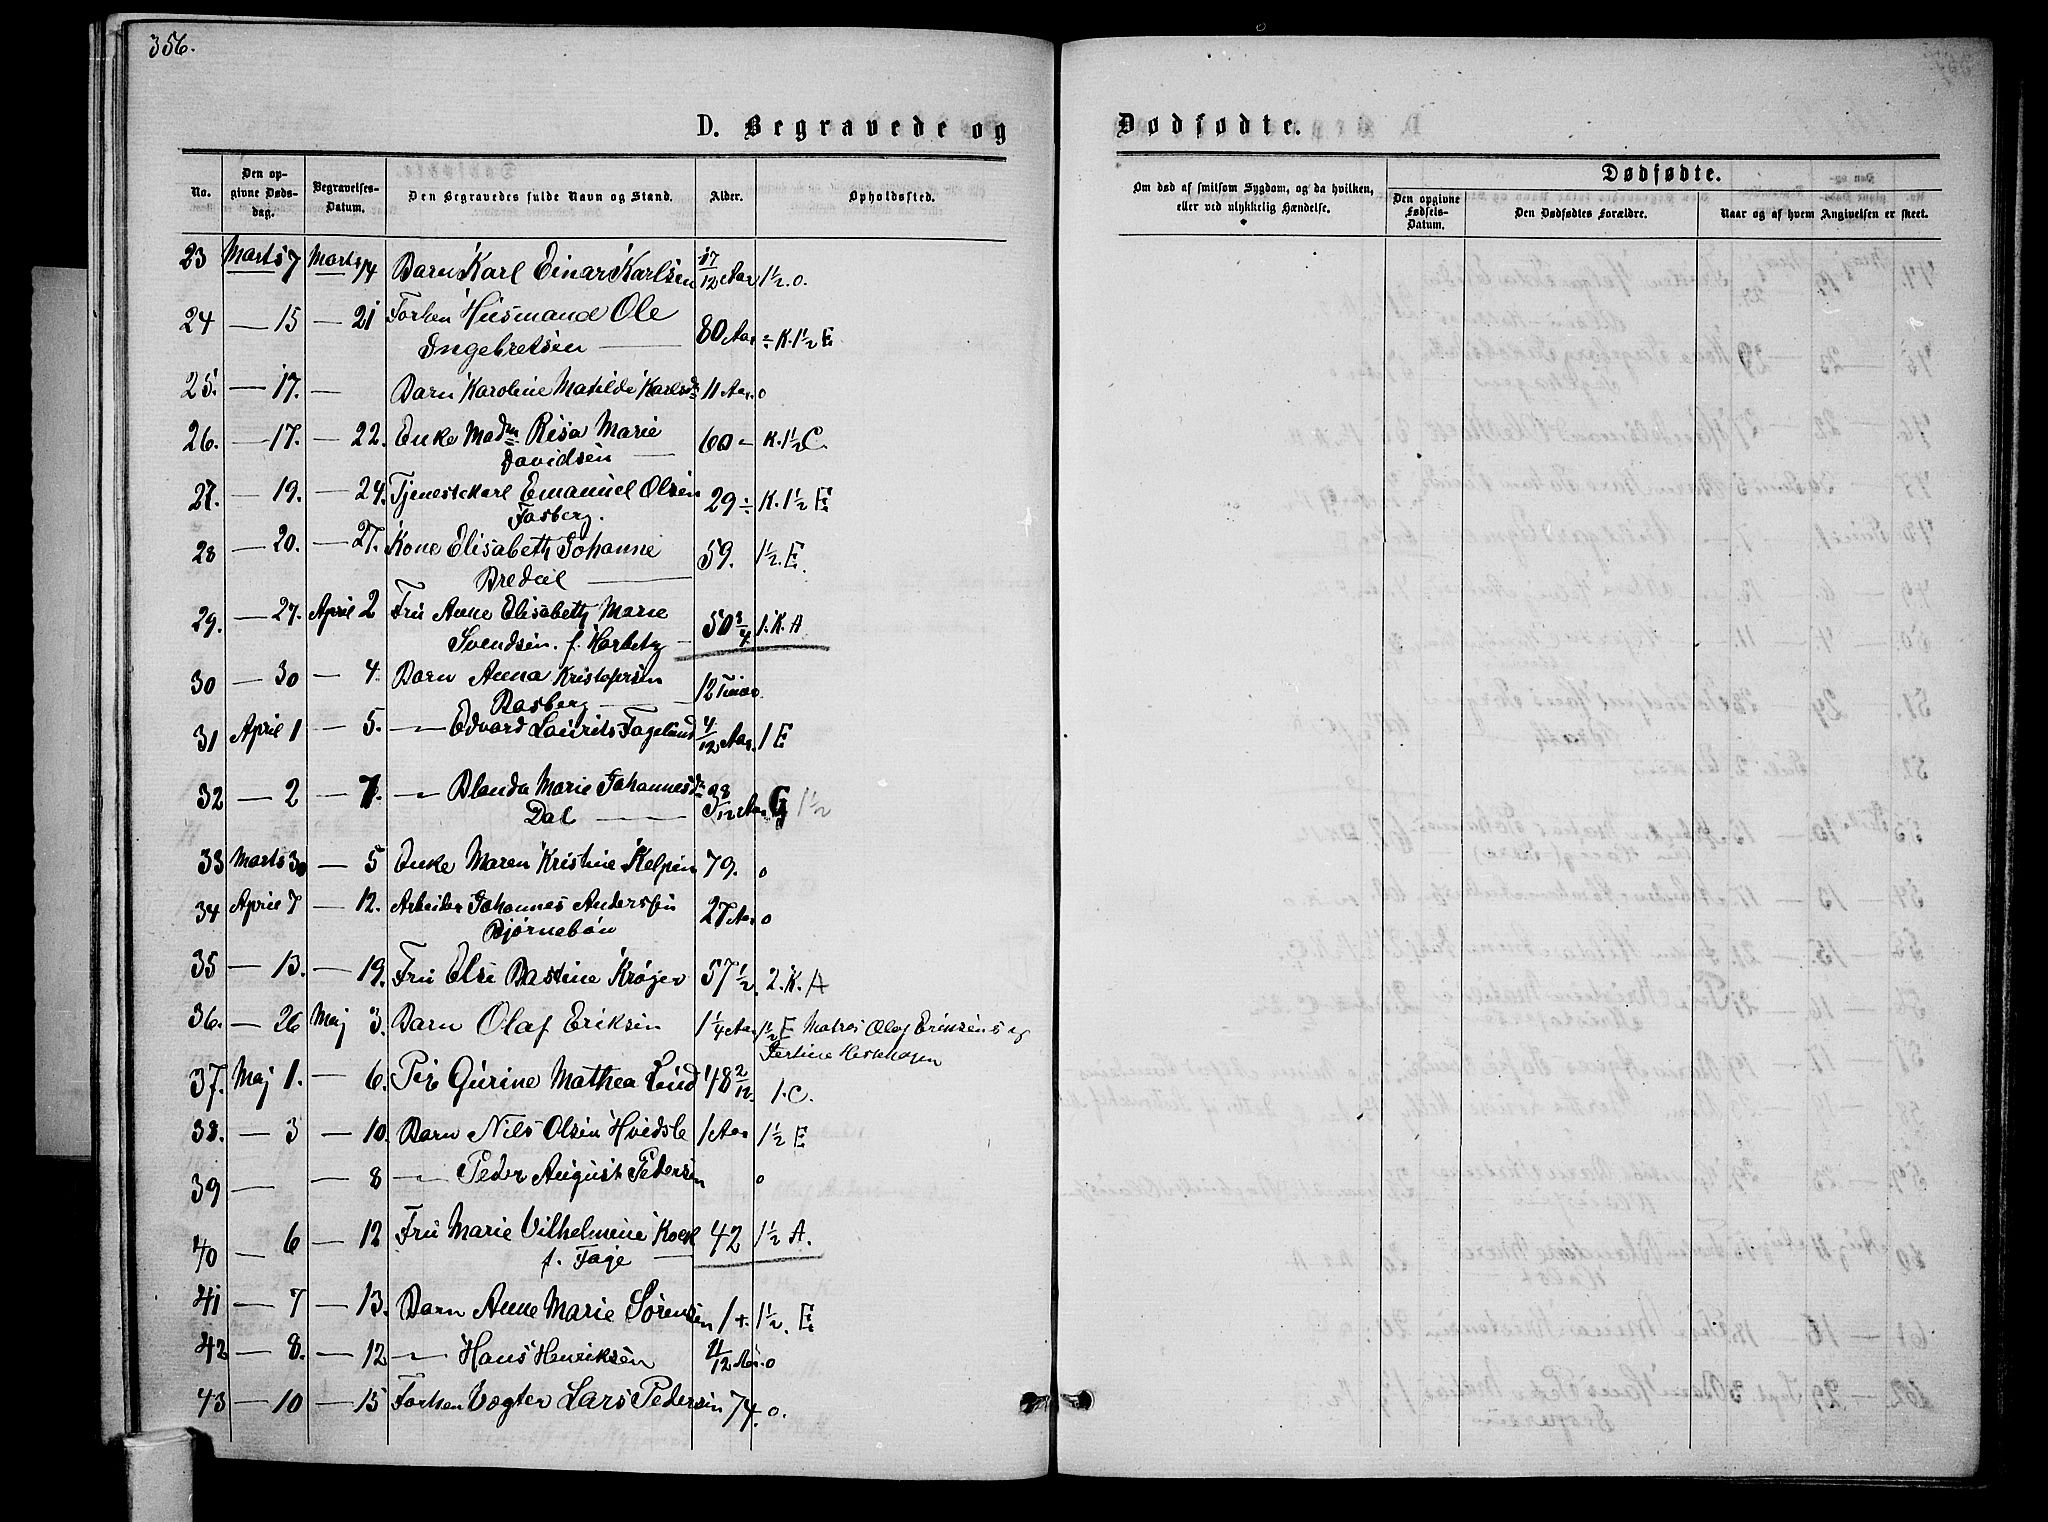 356.
D. Begravede og
Dødfødte.
No.
Den op-
givne Døds-
dag.
Begravelses-
Datum.
Den Begravedes fulde Navn og Stand.
Alder.
Opholdssted.
Om død af smitsom Sygdom, og da hvilken,
eller ved ulykkelig Hændelse.
Dødfødte.
Den opgivne
Fødsels-
Datum.
Den Dødfødtes Forældre.
Naar og af hvem Angivelsen er skeet.
23 Marts 7 Marts 14 Barn Karl Einar Karlsen 17/12 Aar 1½. o.
24 — 15 — 21 Forhen Husmand Ole 80 Aar ÷ K. 1½ E
Ingebretsen —
25. — 17. — Barn Karoline Matilde Karlsdr 11 Aar. o
26. — 17. — 22. Enke Madm Risa Marie 60 – K. 1½ C.
Davidsen —
27. — 19. — 24. Tjenestekarl Emanuel Olsen 29 ÷ K. 1½ E
Fasberg.
28 — 20. — 27. Kone Elisabeth Johanne 59. 1½. E.
Bredal —
29. — 27. April 2 Fru Anne Elisabeth Marie 50 3/4 1. K. A
Svendsen. f. —
30 — 30 — 4. Barn Anna Kristofersen 12 Timer o.
Basberg —
31 April 1 — 5. — Edvard Laurits Fageland 4/12 Aar. 1 E
32 — 2 — 7. — Blanda Marie Johannesdr 3 8/12 Aar G 1½
Dal —
33 Marts 30 — 5 Enke Maren Kristine Kelpin 79. o
34 April 7 — 12. Arbeider Johannes Anderssen 27 Aar o
Bjørnebøn
35 — 13. — 19. Fru Else Bastine Krøger 57 ½. 2. K. A
36. — 26 Maj 3. Barn Olaf Eriksen 1¼ Aar 1½ E Matros Olaf Eriksens og
Hesthagen
37. Maj 1. — 6. Pige Gurine Mathea Lund 48 2/12. 1. C.
38. — 3 — 10. Barn Nils Olsen Hvidsle 1 Aar 1½ E
39 — — 8 — Peder August Pedersen o
40 — 6 — 12 Fru Marie Vilhelmine Kock 42 1½ A.
f. Foyn —
41 — 7 — 13. Barn Anne Marie Sørensen 1 1½. E
42 — 8. — 12 — Hans Henriksen 11/12 Aar. o
43 — 10 — 15 Forhen Vægter Lars Pedersen 74. o.